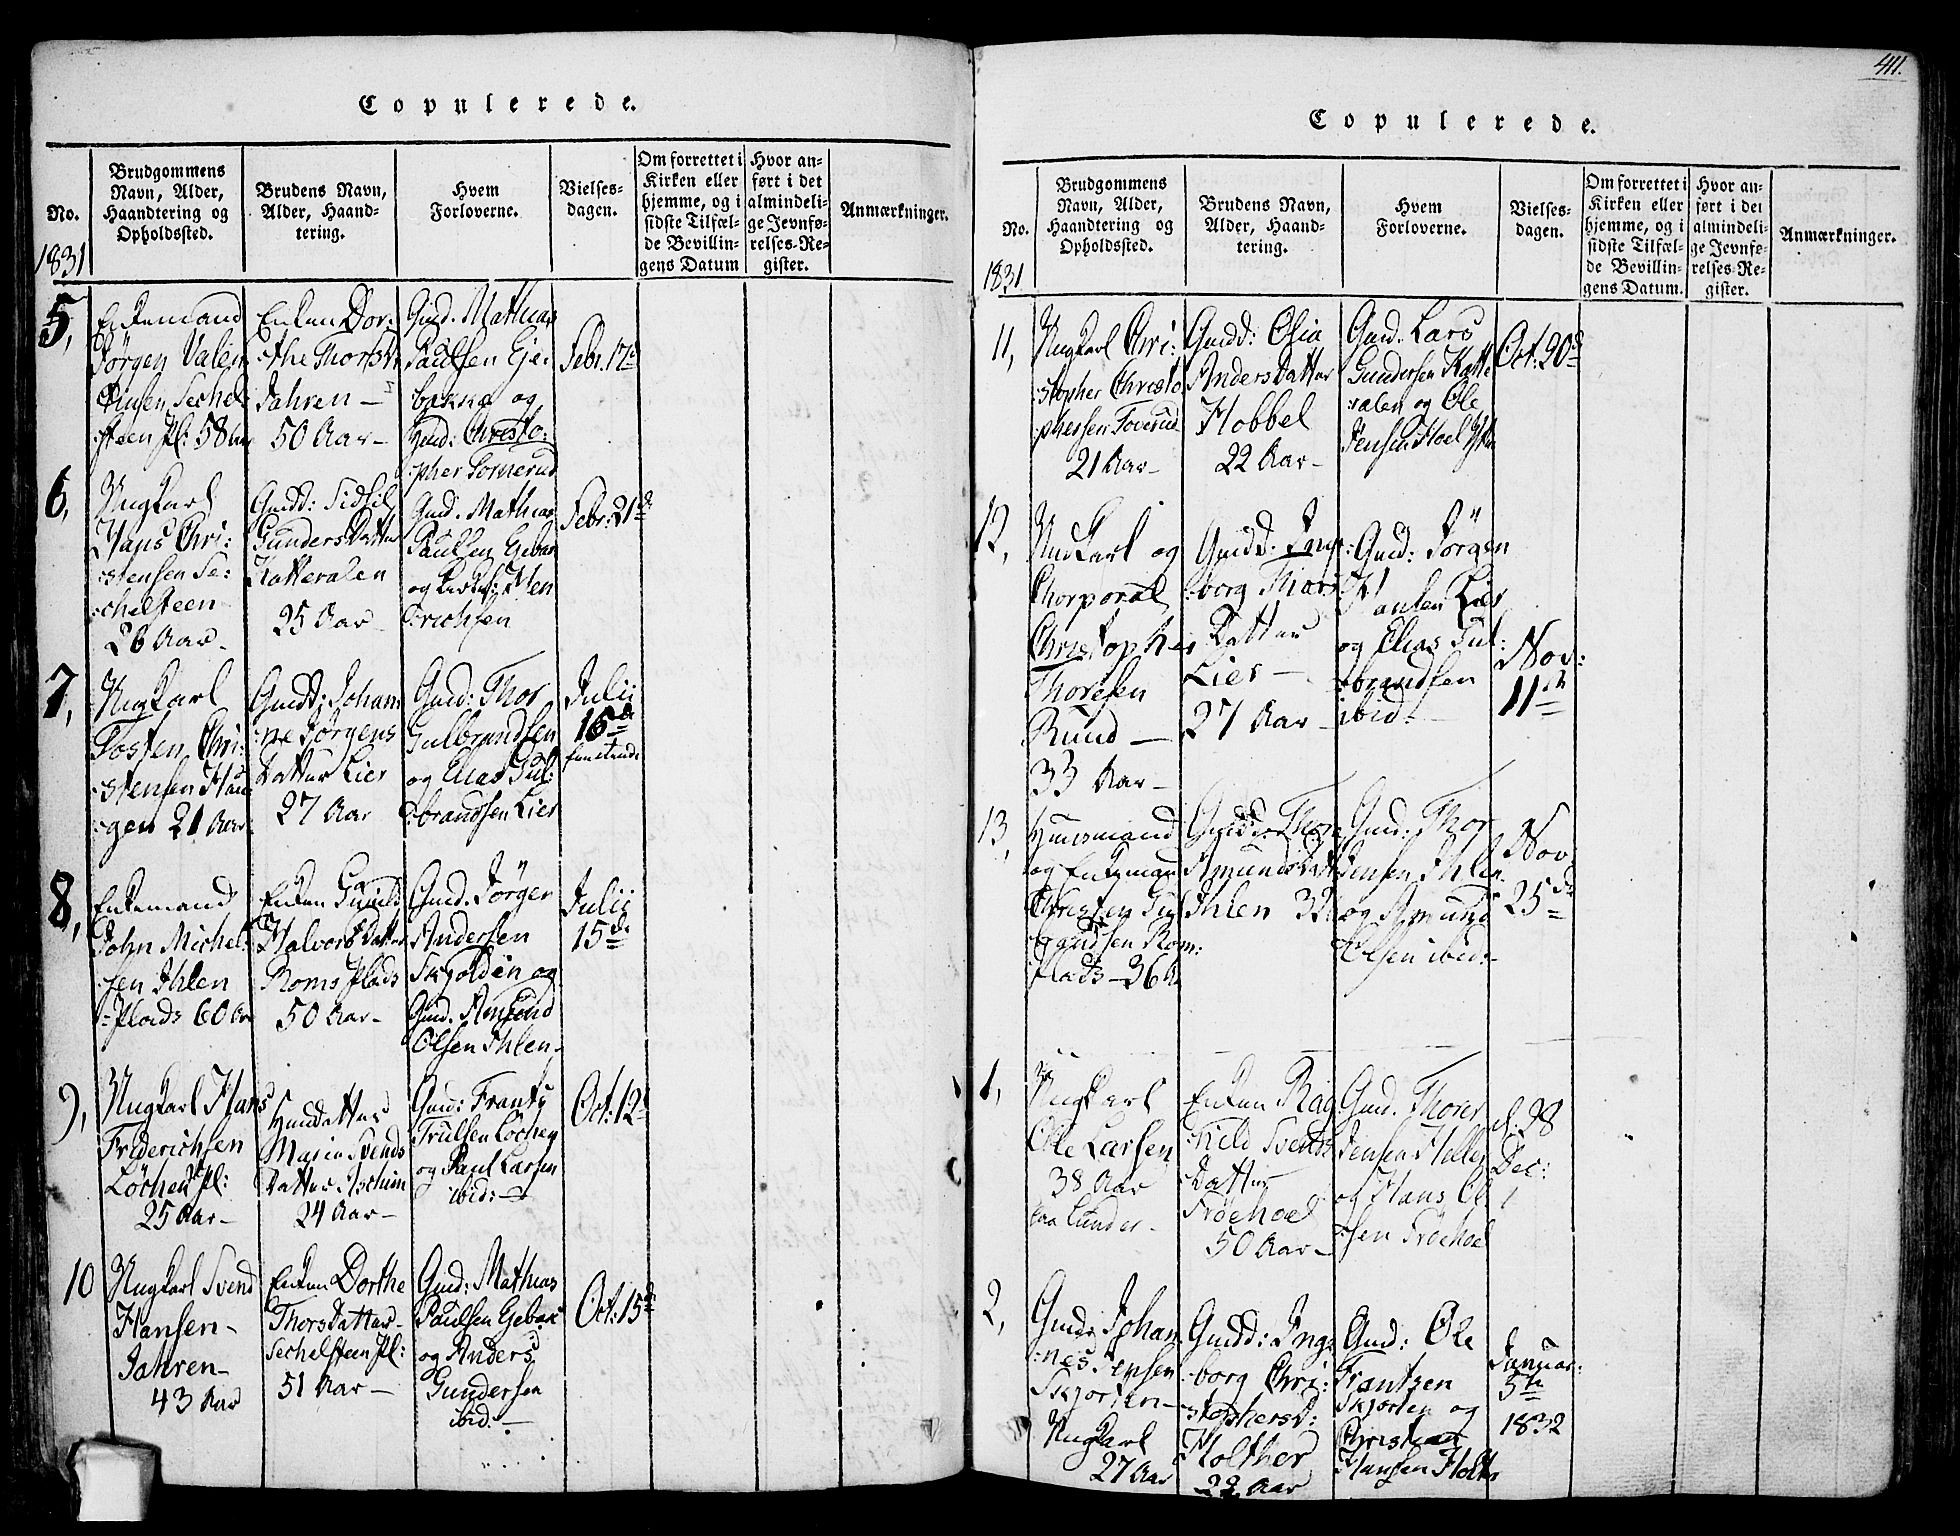 Copulerede.
No.
1831
Brudgommens
Navn, Alder,
Haandtering og
Opholdssted.
Brudens Navn,
Alder, Haand-
tering.
Hvem
Forloverne.
Vielses-
dagen.
Om forrettet i
Kirken eller
hjemme, og i
sidste Tilfæl-
de Bevillin-
gens Datum
Hvor an-
ført i det
almindeli-
ge Jevnfø-
relses-Re-
gister.
Anmærkninger.
5,
Enkemand
Jörgen Valen-
tinsen Sechel-
steen Pl: 58 Aar
Enken Dor-
:the Thorsdr
Jahren —
50 Aar —
Gmd. Mathias
Paulsen Eje-
bakke og
Gmd: Christo:
:pher Tomerud
Febr. 17d
6,
Ungkarl
Hans Chri:
:stensen Se:
:chelsteen
26 Aar —
Gmdd: Sidsil
Gunders Datter
Katteralen
25 Aar
Gmd. Mathias
Paulsen Ejebak
og
Erichsen
Febr: 21de
7,
Ungkarl
Tosten Chri:
:stensen Hau:
:gen 21 Aar
Gmdd: Johan
:ne Jörgens
Datter Lier
27 Aar
Gmd: Thor
Gulbrandsen
og Elias Gul:
:brandsen Lier
Julii
15de
8,
Enkemand
John Michel:
:sen Ihlen
Plads 60 Aar
Enken Gunild
Halvors Datter
Roms Plads
50 Aar —
Gmd. Jörgen
Andersen
Skjolden og
Gmd. Amund
Olsen Ihlen
Julii
15de
9,
Ungkarl Hans
Friderichsen
Löchen Pl:
25 Aar —
Huusdatter
Marie Svends
Datter Aschim
24 Aar —
Gmd: Frants
Trulsen Löchen
og Paul Larsen
ibid: —
Oct: 12d
10
Ungkarl Svend
Hansen —
Jahren —
43 Aar
Enken Dorthe
Thors Datter
Sechelsteen Pl:
51 Aar —
Gmd: Mathias
Paulsen Ejebak
og Anders
Gundersen
ibid: —
Oct: 15de
411.
Copulerede.
No.
1831.
Brudgommens
Navn, Alder,
Haandtering og
Opholdssted.
Brudens Navn,
Alder, Haand-
tering.
Hvem
Forloverne.
Vielses-
dagen.
Om forrettet i
Kirken eller
hjemme, og i
sidste Tilfæl-
de Bevillin-
gens Datum.
Hvor an-
ført i det
almindeli-
ge Jevnfø-
relses-Re-
gister.
Anmærkninger.
11,
Ungkarl Chri:
:stopher Christo
:phersen Toverud
21 Aar —
Gmdd: Osia
Anders Datter
Hobbel
22 Aar —
Gmd. Lars
Gundersen Katte
:ralen og Ole
Jensen Hoel
12,
Ungkarl og
Chorporal
Christopher
Thoresen
Rund —
33 Aar —
Gmdd: Inge:
:borg Thors
Datter
Lier —
27 Aar —
Gmd: Jörgen
Hansen Lier
og Elias Gul:
:brandsen
ibid: —
Nov:
11te
13,
Huusmand
og Enkemand
Christen Gul
:brandsen Rom:
Plads — 36 A.
Gmdd: Thore
Amunds Datt
Ihlen 32
Gmd: Thor
Jensen Ihlen
og Amund
Olsen ibid: —
Nov.
25de
1,
Ungkarl
Ole Larsen
38 Aar
paa Lunder —
Enken Rag
:nild Svends
Datter
Fröehoel
50 Aar —
Gmd. Thorer
Jensen Heller
og Hans Ol
:sen Fröehoel
d. 28
Dec:
2,
Gmd: Johan
:nes Jepsen
Skjorten —
Ungkarl
27 Aar
Gmdd: Inge
:borg Chri:
:stophersd:
Holther
22 Aar
Gmd: Ole
Frantzen
Skjorten og
Christian
Hansen Holte
Januar:
5te
1832